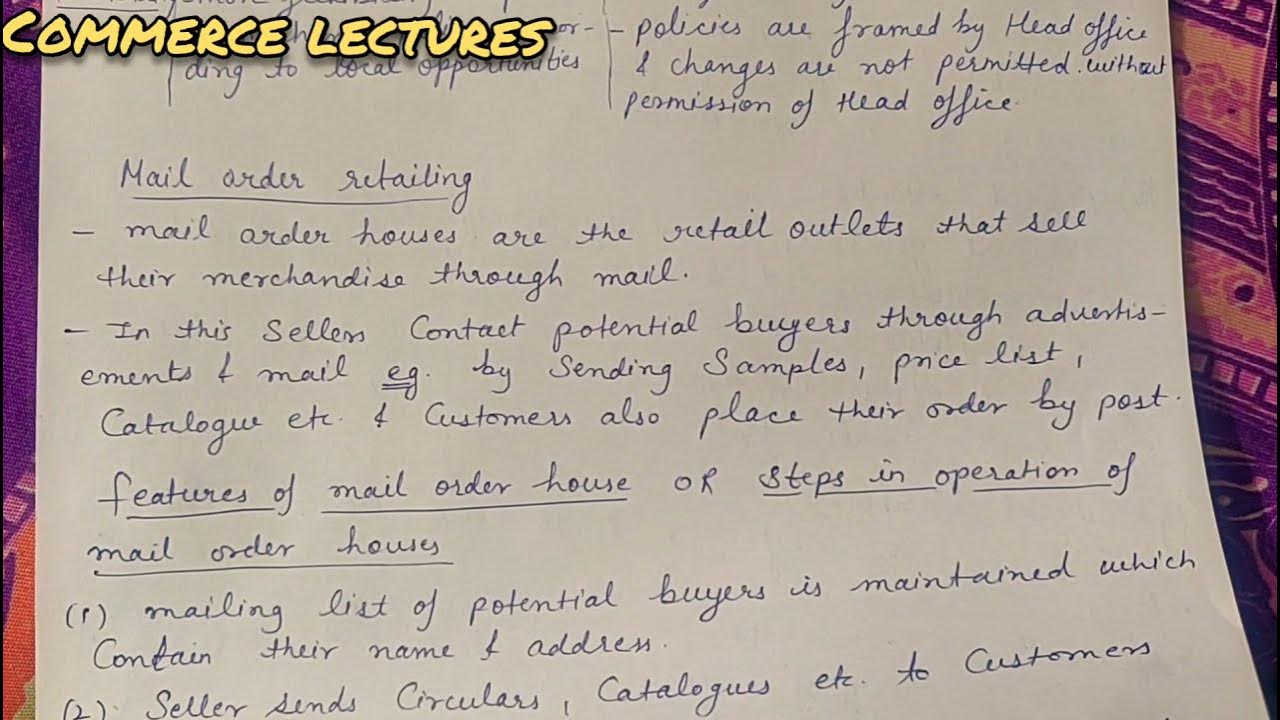 COMMERCE LECTURES
or- - policies are framed by Head office
ding to local opportunities & changes are not permitted without
permission of Head office.
Mail order retailing
- mail order houses are the retail outlets that sell
their merchandise through mail.
- In this Sellers Contact potential buyers through advertis-
ements & mail eg. by Sending Samples, price list,
Catalogue etc. & Customers also place their order by post.
features of mail order house OR Steps in operation of
mail order houses
(1) mailing list of potential buyers is maintained which
Contain their name & address.
(2). Seller sends Circulars, Catalogues etc. to Customers